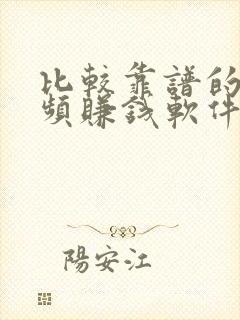 比較靠譜的
頻賺錢軟件
陽安江